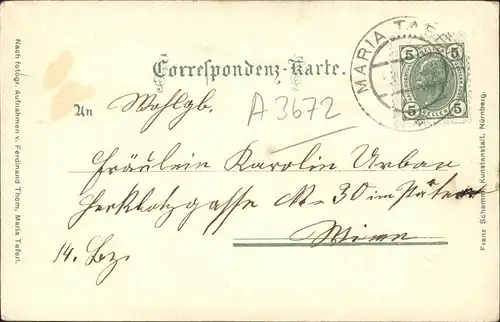 MARIA TAFERL
5 5
5 HELLER 5
Correspondenz-Karte.
An Wohlgb.
A 3672
Fräulein Karolin Urban
Herklotzgasse No 30 im
Wien
14. Bz.
Nach fotogr. Aufnahmen v. Ferdinand Thom, Maria Taferl.
Franz Schemm, Kunstanstalt, Nürnberg.